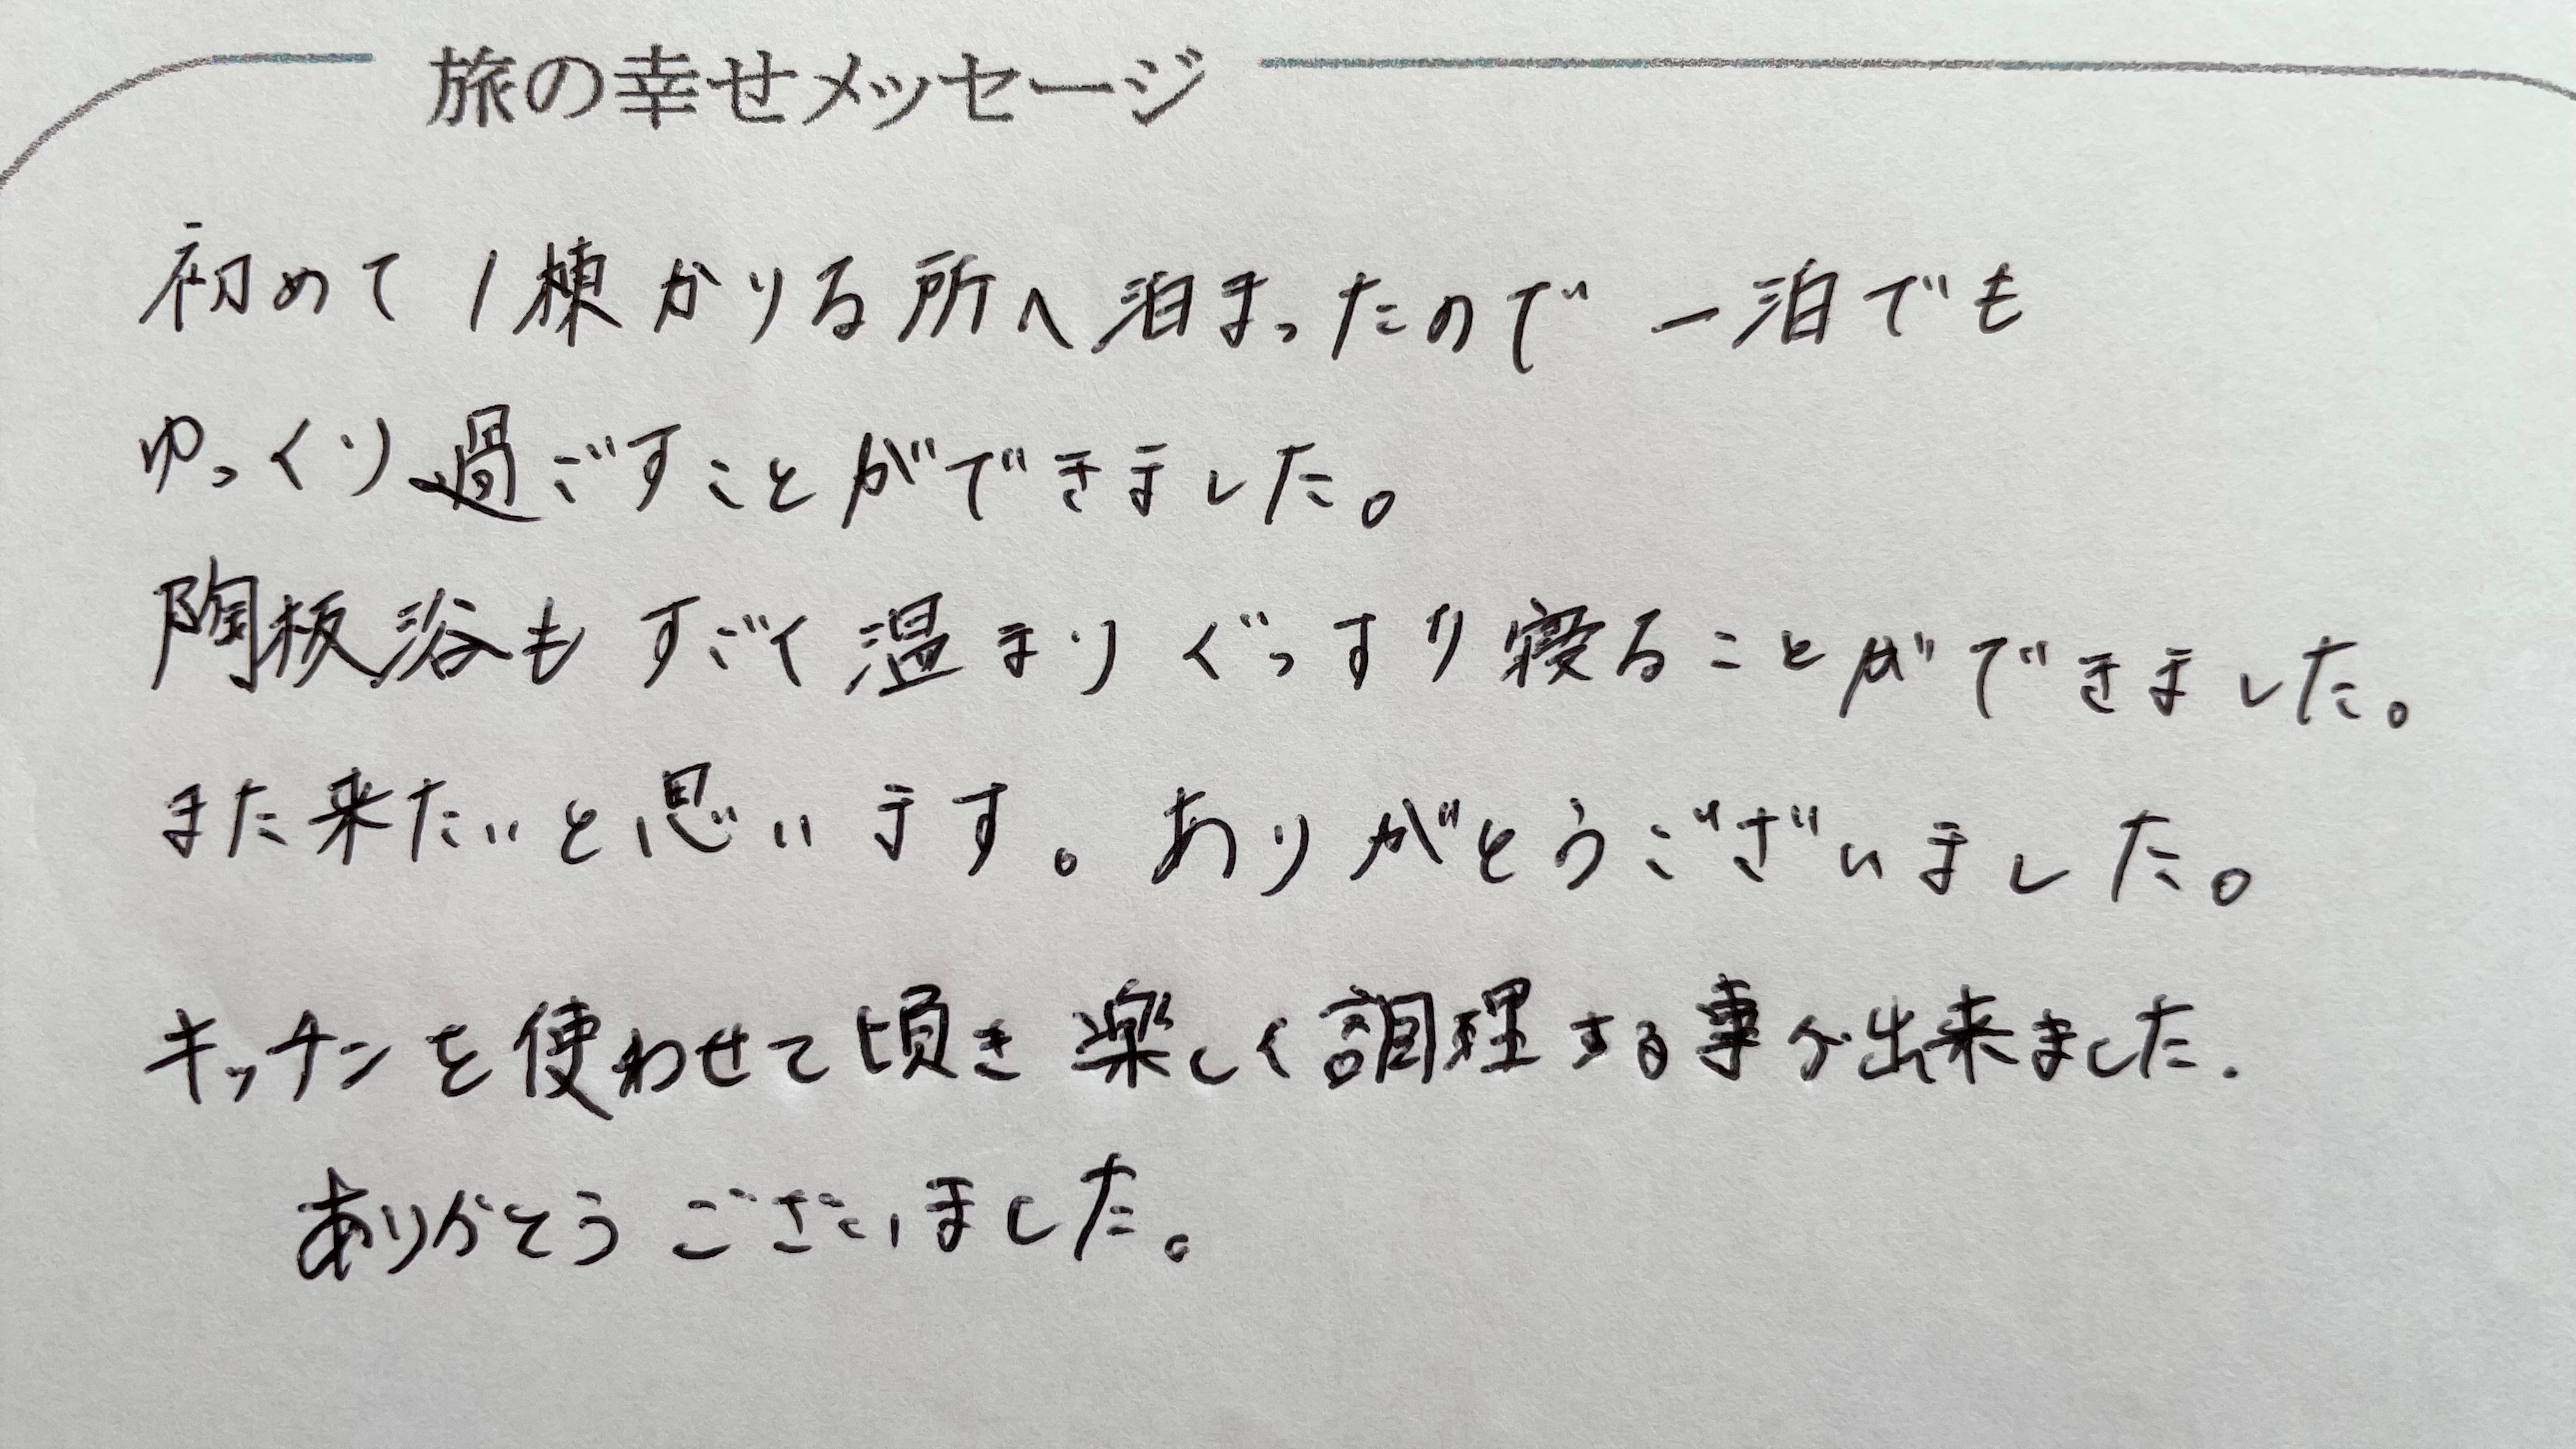 旅の幸せメッセージ
初めて1棟かりる所へ泊まったので一泊でも
ゆっくり過ごすことができました。
陶板浴もすごく温まりぐっすり寝ることができました。
また来たいと思います。ありがとうございました。
キッチンを使わせて頃き楽しく調理する事が出来ました.
ありがとうございました。